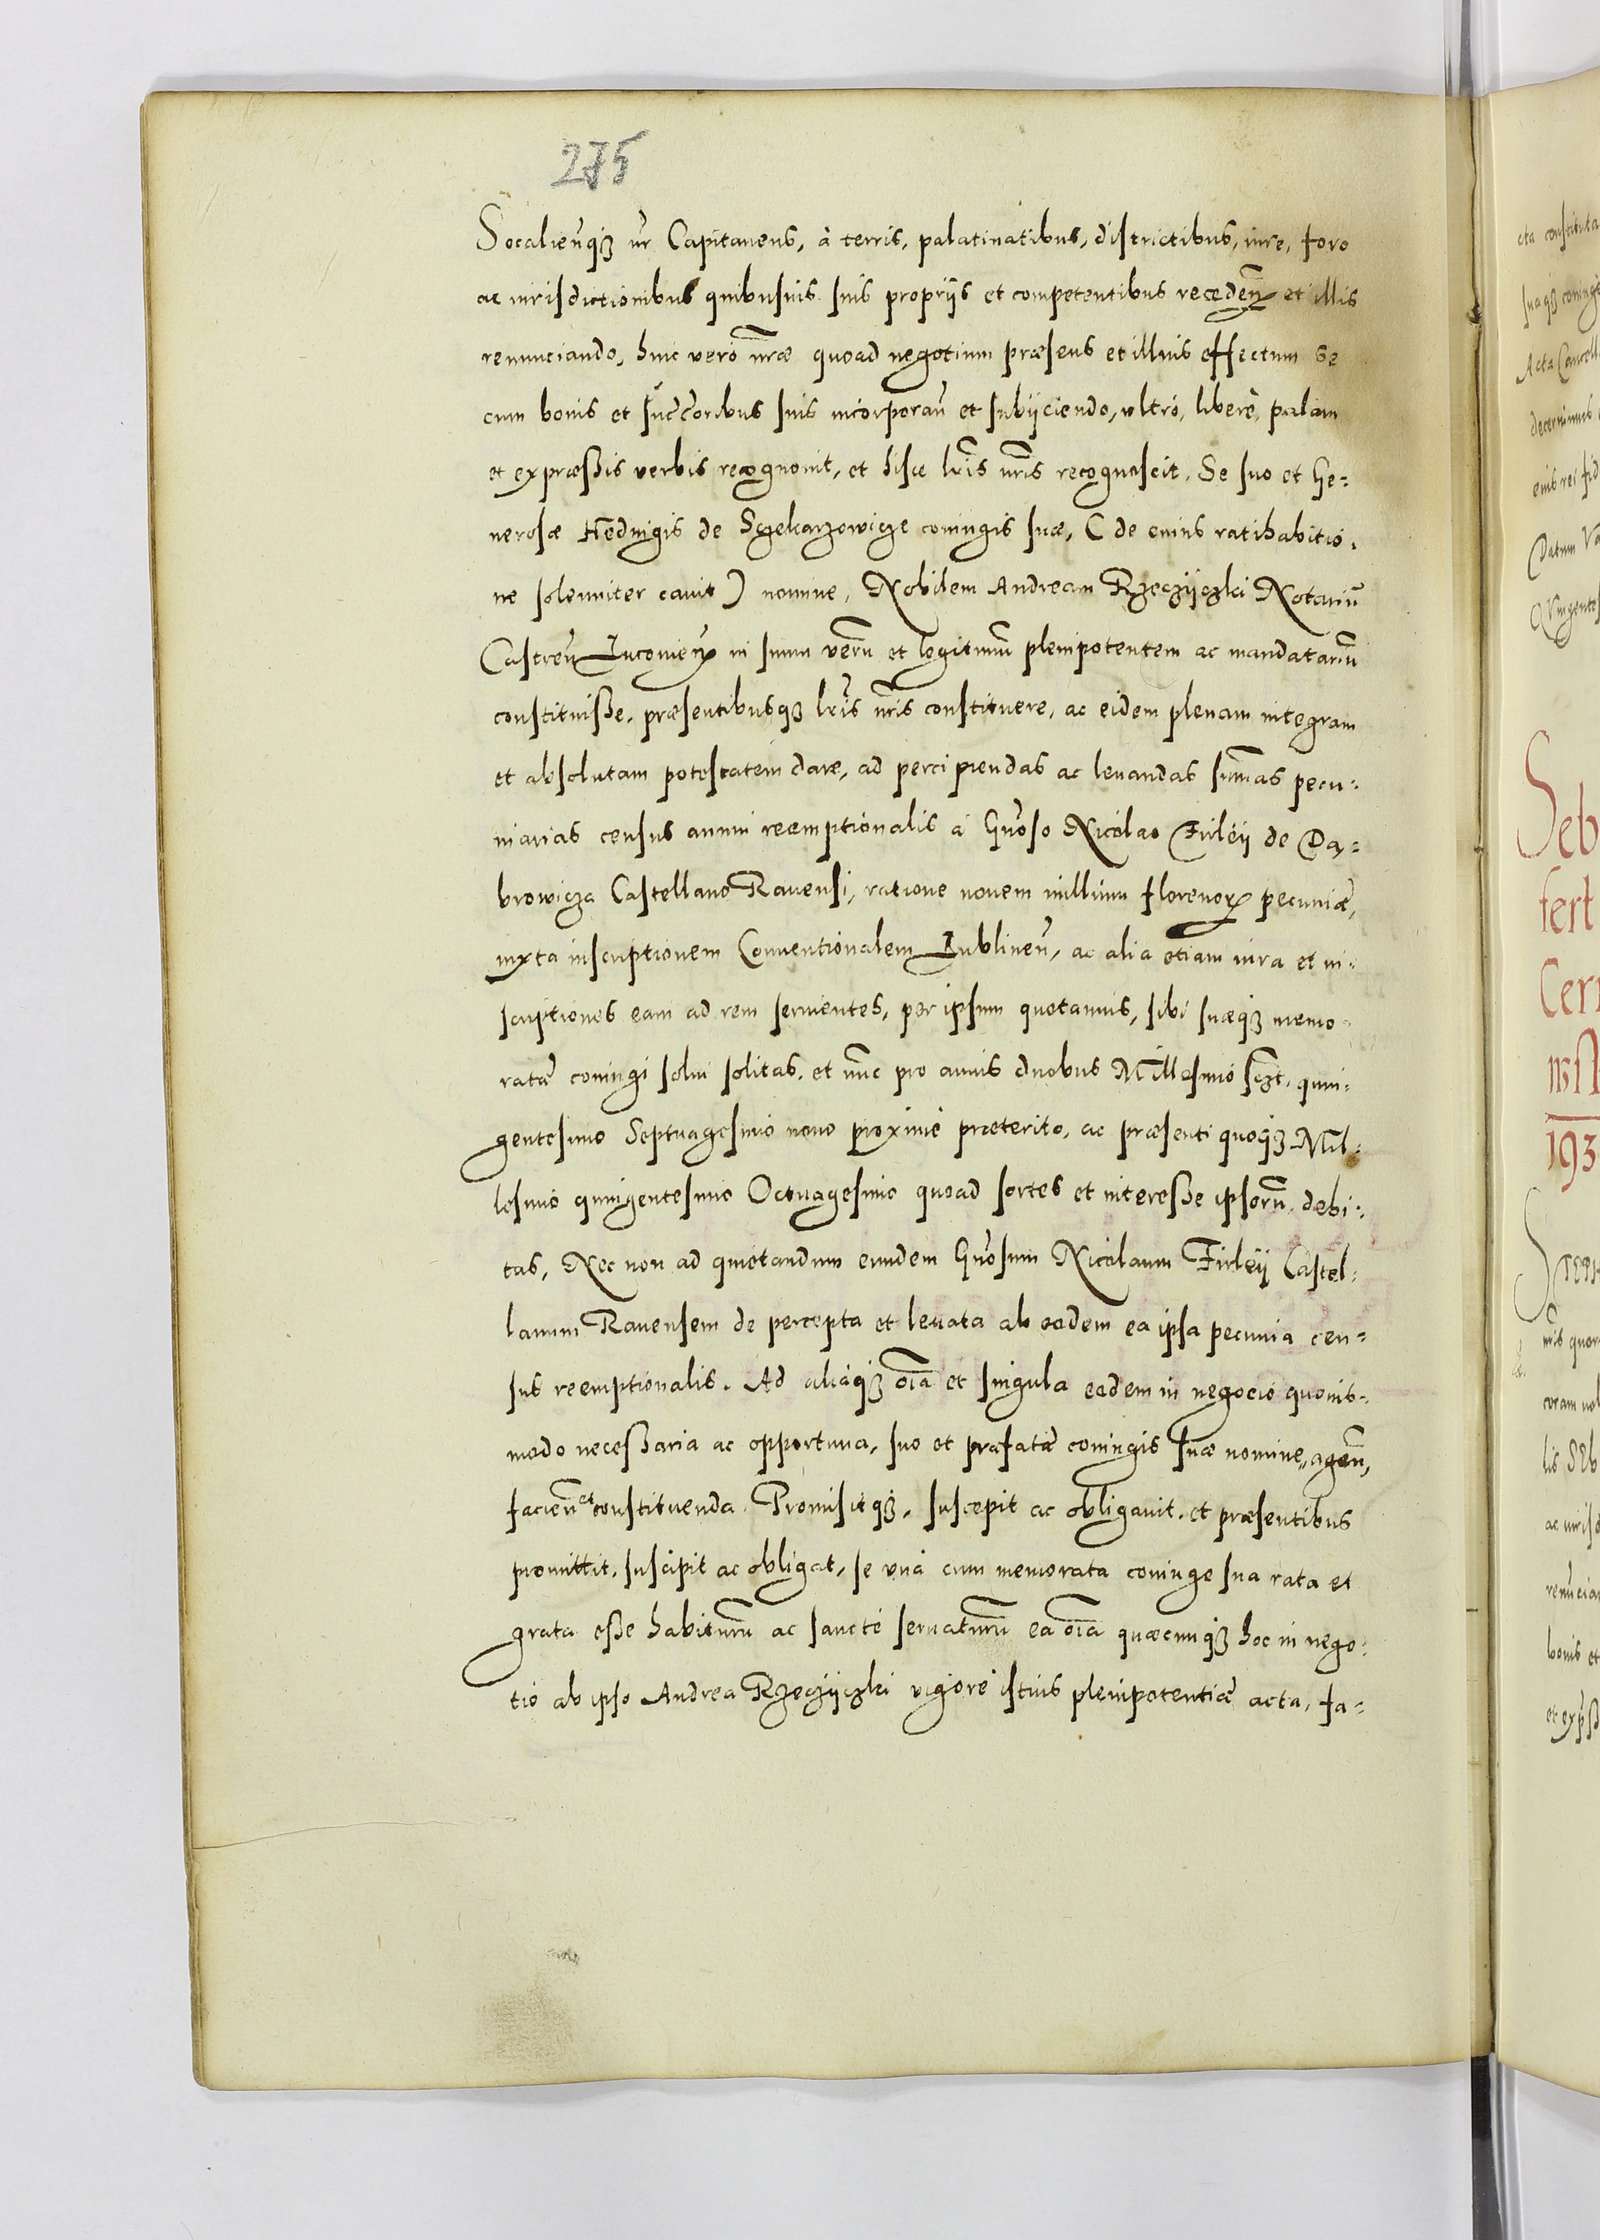 275
Socalieñqȝ ur Capitaneus, à terris, palatinatibus, districtibus, iure, foro
ac iurisdictionibus quibusuis suis propriis et competentibus recedeñ et illis
renunciando, huic verò nr̃ae quoad negotium præsens et illius effectum se
cum bonis et succ̃oribus suis incorporañ et subijciendo, ultrò, liberè, palam
et expræssis verbis recognouit, et hisce lr̃is nr̃is recognoscit. Se suo et Ge=
nerosæ Heduigis de Szekarzowicze coniugis suæ, ( de cuius ratihabitio.
ne solenniter cauit ) nomine, Nobilem Andream Rzeczijczki Notariũ
Castreñ Lucorieñ in suum verũ et legitimũ plenipotentem ac mandatariũ
constituisse, præsentibusqȝ lr̃is nr̃is constituere, ac eidem plenam integram
et absolutam potestatem dare, ad percipiendas ac leuandas sum̃as pecu=
niarias census annui reemptionalis à Gñoso Nicolao Firleij de Da=
browicza Castellano Rauensi, ratione nouem millium florenorũ pecuniæ,
iuxta inscriptionem Conuentionalem Lublineñ, ac alia etiam iura et in=
scriptiones eam ad rem seruientes, per ipsum quotannis, sibi suæqȝ memo
ratæ coniugi solui solitas, et nũc pro annis duobus Millesimo sczt. quin=
gentesimo Septuagesimo nono proximè præterito, ac præsenti quoqȝ Mil=
lesimo quingentesimo Octuagesimo quoad sortes et interesse ipsorũ, debi=
tas, Nec non ad quietandum eundem Gñosum Nicolaum Firleij Castel=
lanum Rauensem de percepta et leuata ab eodem ea ipsa pecunia cen=
sus reemptionalis. Ad aliaqȝ oĩa et singula eodem in negocio quouis=
modo necessaria ac opportuna, suo et præfatæ coniugis suæ nomine, ageñ,
facieñ et constituenda. Promisitqȝ, suscepit ac obligauit, et præsentibus
promittit, suscipit ac obligat, se unà cum memorata coniuge sua rata et
grata esse habiturũ ac sanctè seruaturũ ea oĩa quæcunqȝ hoc in nego=
tio ab ipso Andrea Rzeczijczki vigore istius plenipotentiæ acta, fa=
cta constituta
Acta Cancell
decernimus
cuius rei fid
Datum Va
Quingentes
Seb
fert
Cer
193
nris quor
coram nob
ac iurisd
renũcia
bonis et